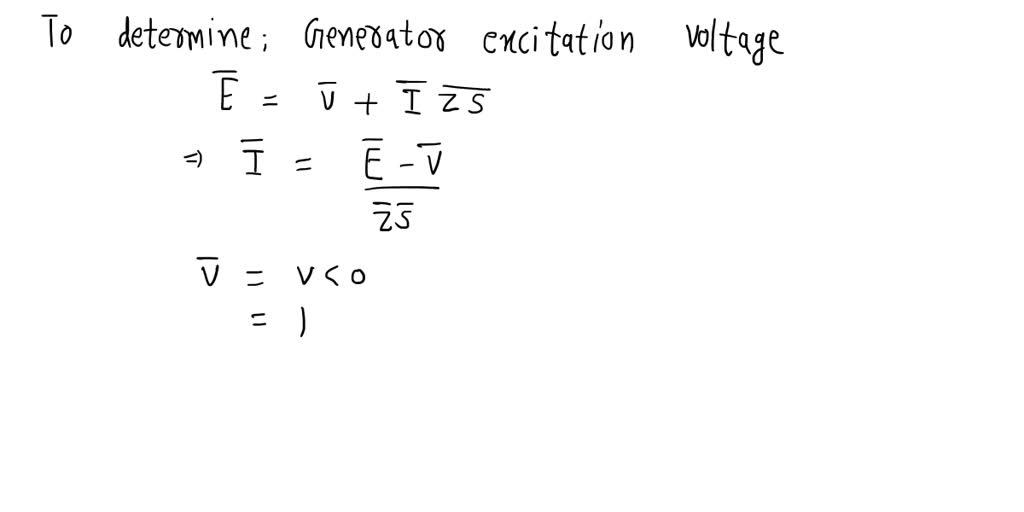 To determine; Generator excitation voltage
E̅ = V̅ + I̅ Z̅S̅
⇒ I̅ = E̅ - V̅
Z̅S̅
V̅ = V<0
= 1